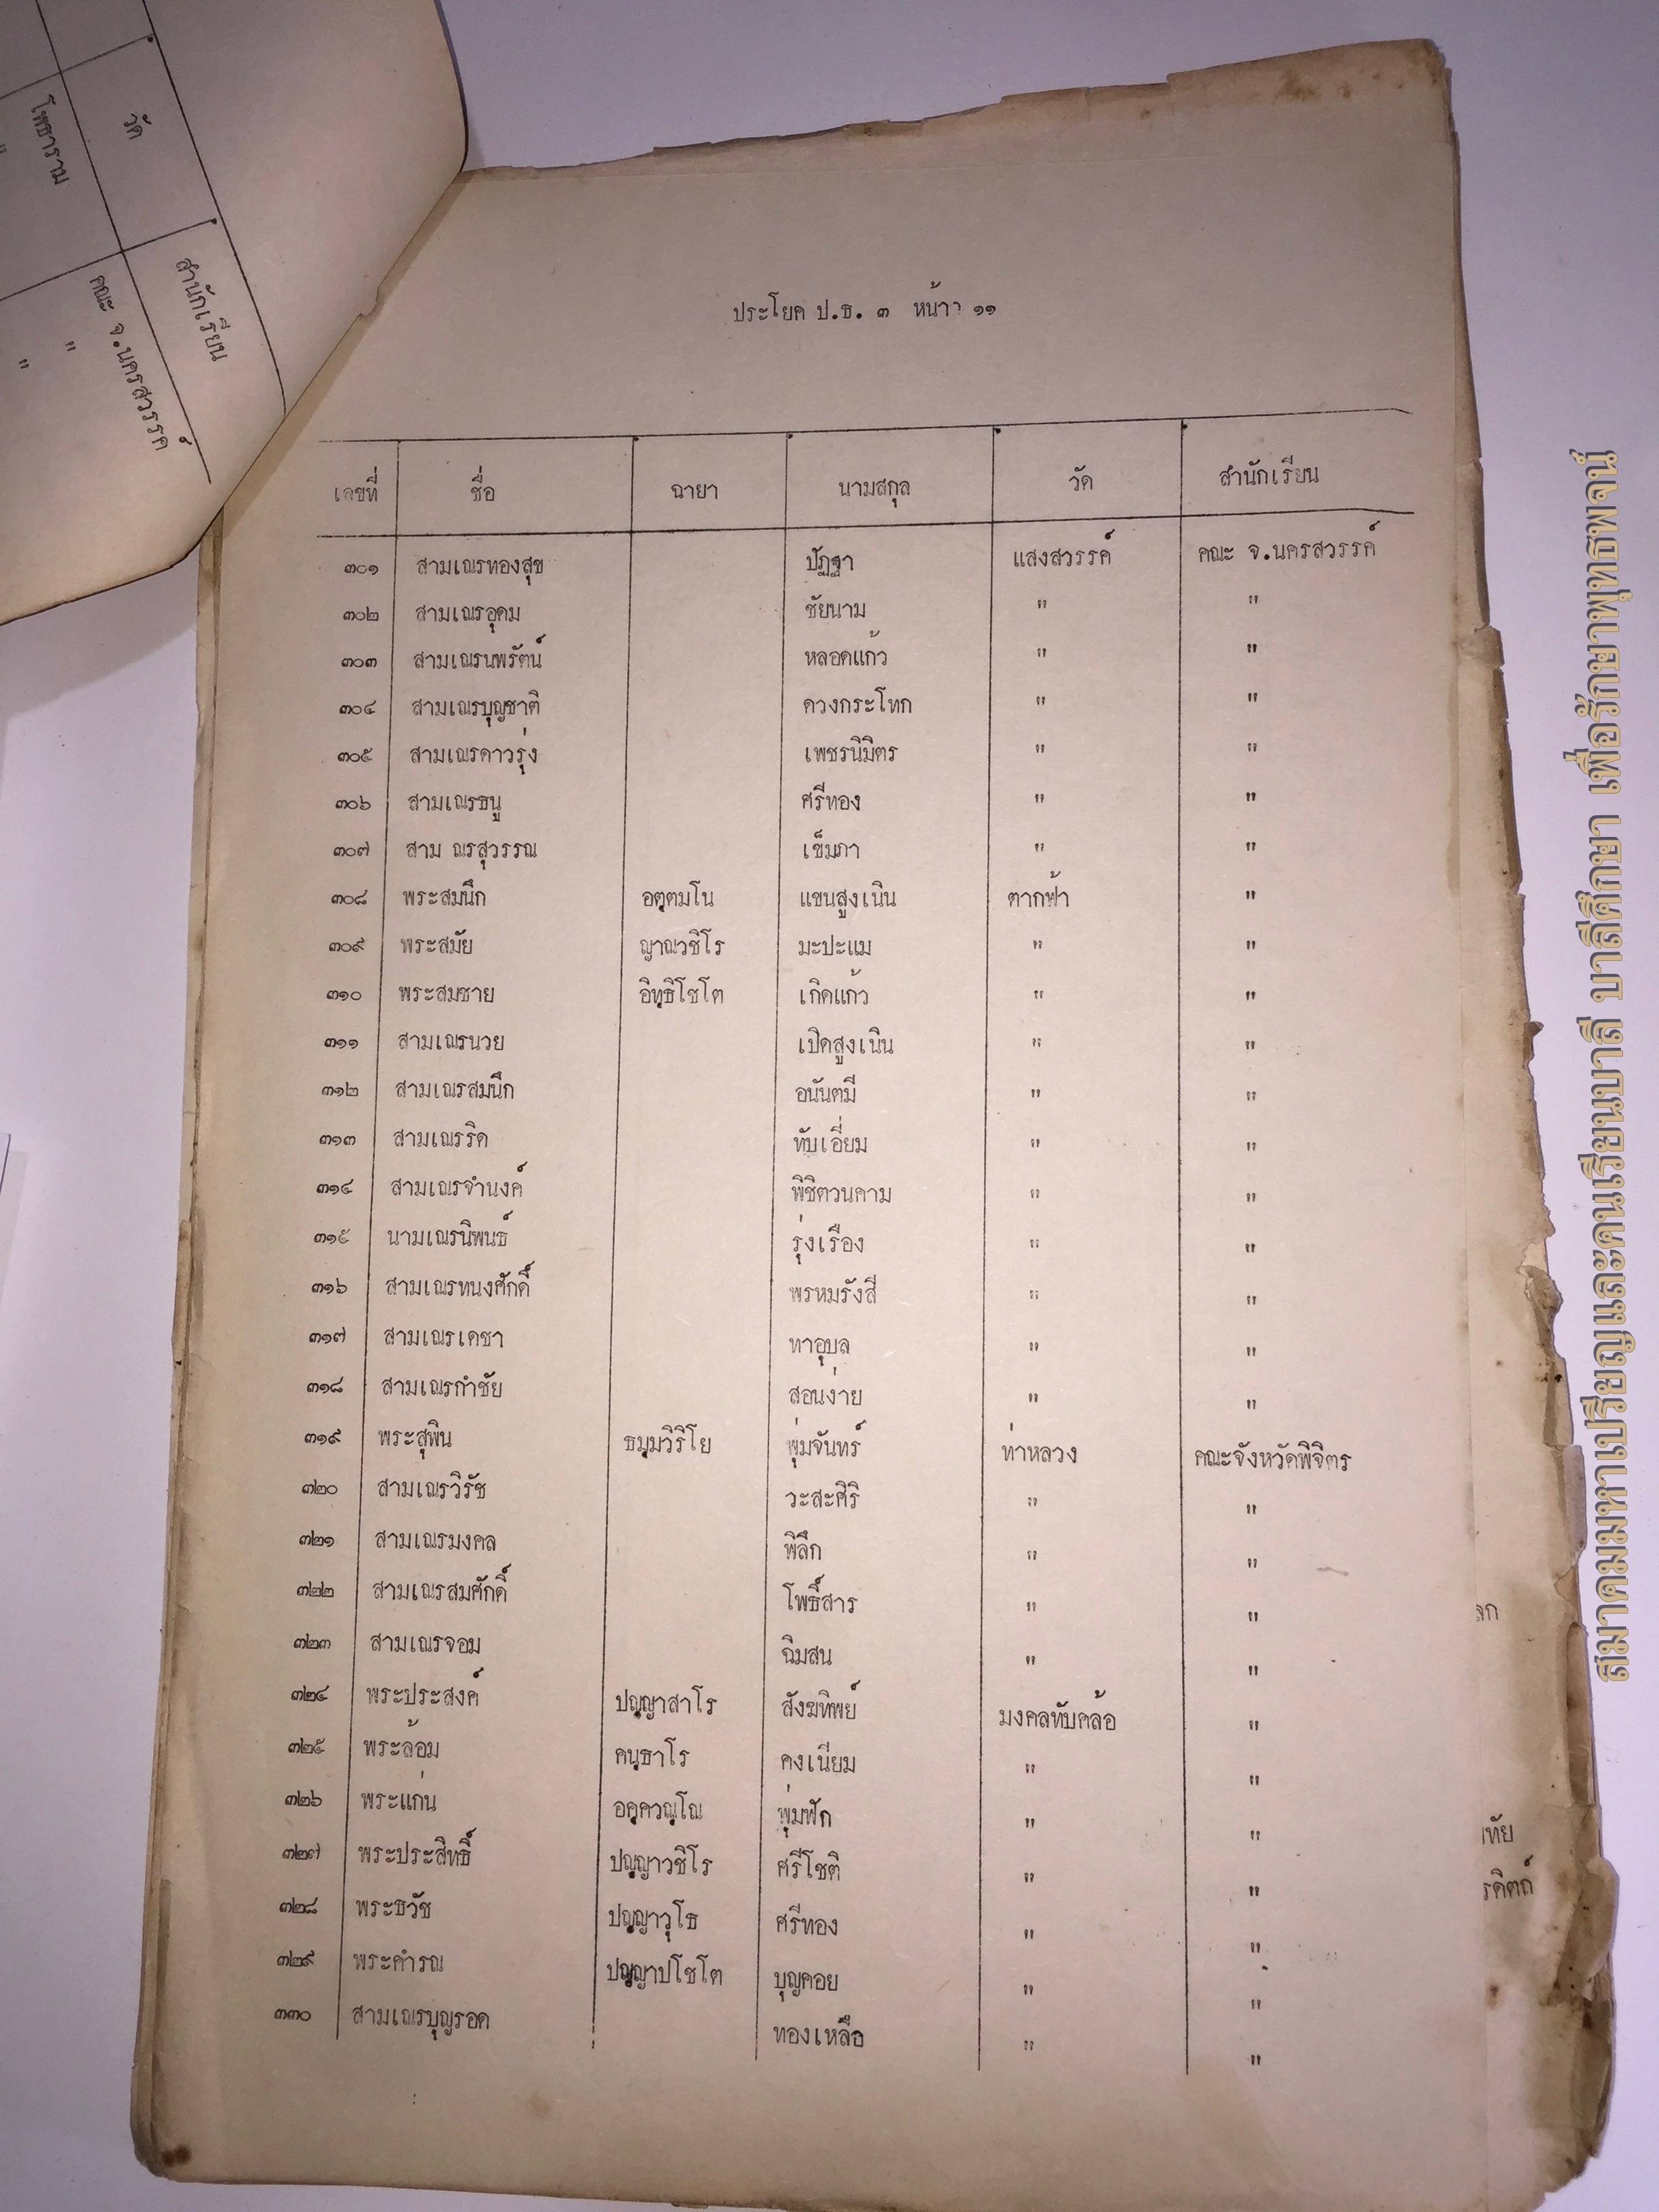 วัด
สำนักเรียน
โพธาราม
คณะ จ.นครสวรรค์
"
"
"
ประโยค ป.ธ. ๓ หน้า ๑๑
เลขที่ ชื่อ ฉายา นามสกุล วัด สำนักเรียน
๓๐๑ สามเณรทองสุข ปัฏฐา แสงสวรรค์ คณะ จ.นครสวรรค์
๓๐๒ สามเณรอุดม ชัยนาม " "
๓๐๓ สามเณรนพรัตน์ หลอดแก้ว " "
๓๐๔ สามเณรบุญชาติ ดวงกระโทก " "
๓๐๕ สามเณรดาวรุ่ง เพชรนิมิตร " "
๓๐๖ สามเณรธนู ศรีทอง " "
๓๐๗ สาม ณรสุวรรณ เข็มภา " "
๓๐๘ พระสมนึก อตฺตมโน แขนสูงเนิน ตากฟ้า "
๓๐๙ พระสมัย ญาณวชิโร มะปะแม " "
๓๑๐ พระสมชาย อิทฺธิโชโต เกิดแก้ว " "
๓๑๑ สามเณรนวย เปิดสูงเนิน " "
๓๑๒ สามเณรสมนึก อนันตมี " "
๓๑๓ สามเณรริด ทับเอี่ยม " "
๓๑๔ สามเณรจำนงค์ พิชิตวนดาม " "
๓๑๕ นามเณรนิพนธ์ รุ่งเรือง " "
๓๑๖ สามเณรทนงศักดิ์ พรหมรังสี " "
๓๑๗ สามเณรเดชา ทาอุบล " "
๓๑๘ สามเณรกำชัย สอนง่าย " "
๓๑๙ พระสุพิน ธมฺมวิริโย พุ่มจันทร์ ท่าหลวง คณะจังหวัดพิจิตร
๓๒๐ สามเณรวิรัช วะสะศิริ " "
๓๒๑ สามเณรมงคล พิลึก " "
๓๒๒ สามเณรสมศักดิ์ โพธิ์สาร " "
๓๒๓ สามเณรจอม ฉิมสน " "
๓๒๔ พระประสงค์ ปญฺญาสาโร สังฆทิพย์ มงคลทับคล้อ "
๓๒๕ พระล้อม คนฺธาโร คงเนียม " "
๓๒๖ พระแก่น อคฺควณฺโณ พุ่มฟัก " "
๓๒๗ พระประสิทธิ์ ปญฺญาวชิโร ศรีโชติ " "
๓๒๘ พระธวัช ปญฺญาวุโธ ศรีทอง " "
๓๒๙ พระคำรณ ปญฺญาปโชโต บุญคอย " "
๓๓๐ สามเณรบุญรอด ทองเหลือ " "
ลก
ทัย
รดิตถ์
สมาคมมหาเปรียญและคนเรียนบาลี บาลีศึกษา เพื่อรักษาพุทธพจน์